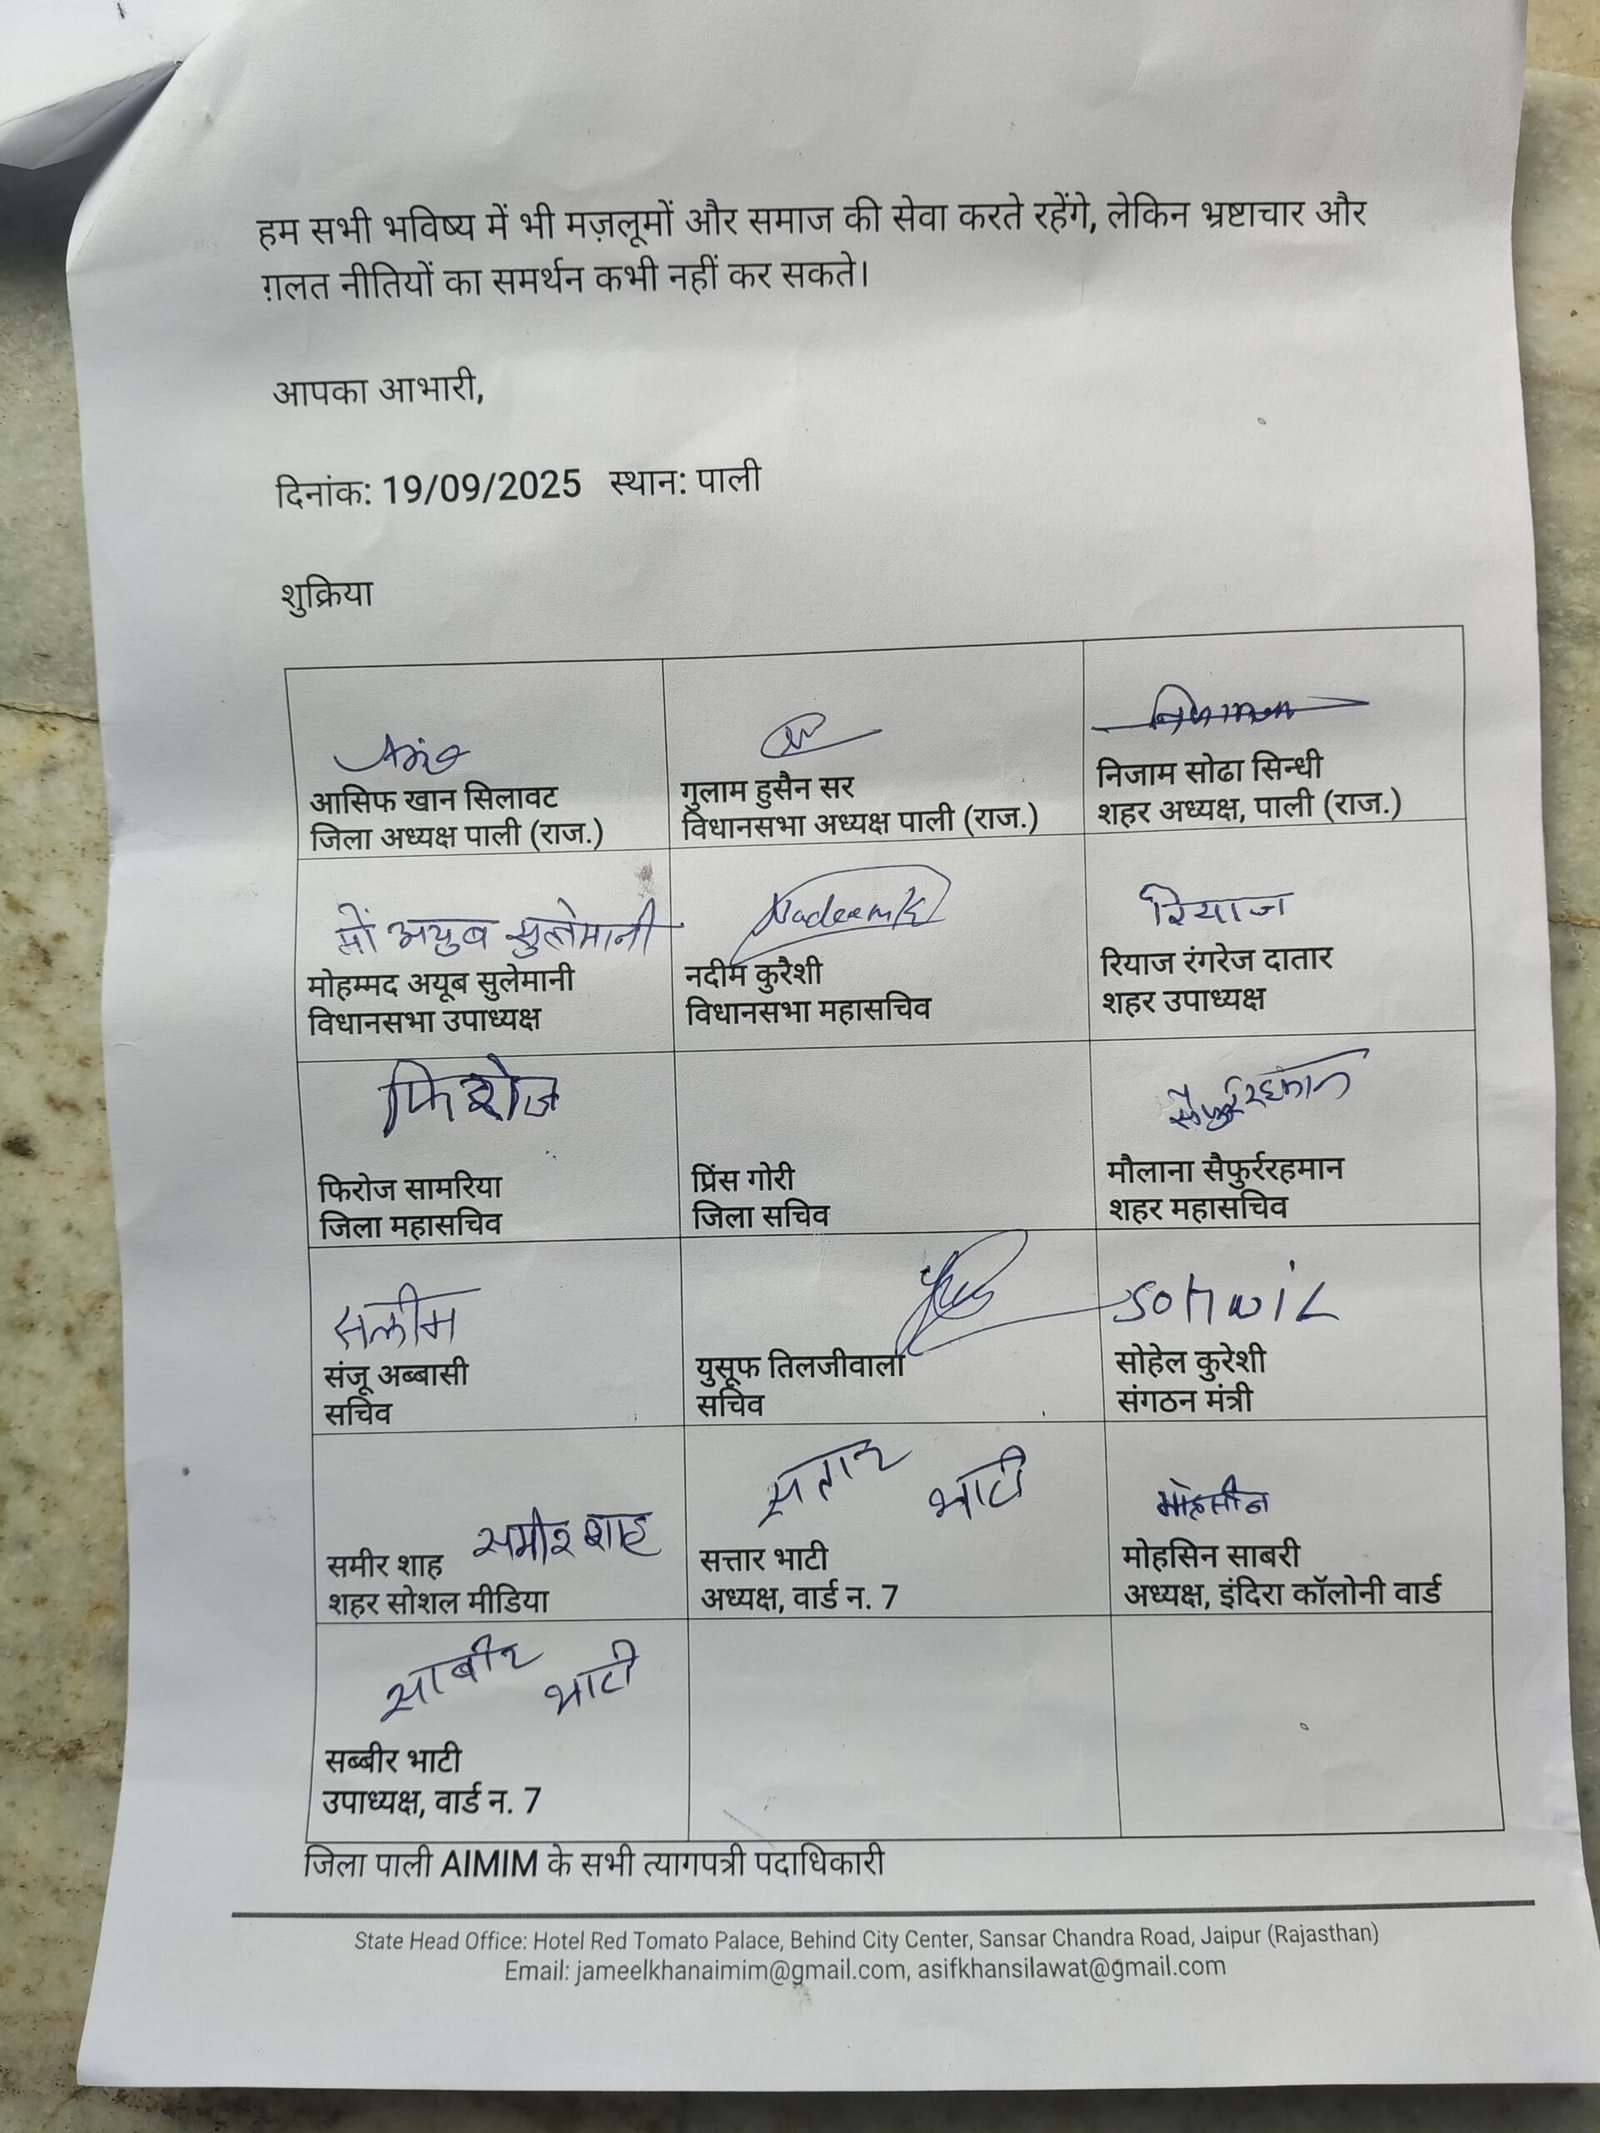 हम सभी भविष्य में भी मज़लूमों और समाज की सेवा करते रहेंगे, लेकिन भ्रष्टाचार और
ग़लत नीतियों का समर्थन कभी नहीं कर सकते।
आपका आभारी,
दिनांक: 19/09/2025 स्थान: पाली
शुक्रिया
आसिफ खान सिलावट
जिला अध्यक्ष पाली (राज.)
गुलाम हुसैन सर
विधानसभा अध्यक्ष पाली (राज.)
निजाम सोढा सिन्धी
शहर अध्यक्ष, पाली (राज.)
मों अयुब सुलेमानी
मोहम्मद अयूब सुलेमानी
विधानसभा उपाध्यक्ष
Nadeem K
नदीम कुरैशी
विधानसभा महासचिव
रियाज
रियाज रंगरेज दातार
शहर उपाध्यक्ष
फिरोज
फिरोज सामरिया
जिला महासचिव
प्रिंस गोरी
जिला सचिव
सैफुर्ररहमान
मौलाना सैफुर्ररहमान
शहर महासचिव
सलीम
संजू अब्बासी
सचिव
युसूफ तिलजीवाला
सचिव
सोहेल कुरेशी
संगठन मंत्री
समीर शाह
समीर शाह
शहर सोशल मीडिया
सतार भाटी
सत्तार भाटी
अध्यक्ष, वार्ड न. 7
मोहसीन
मोहसिन साबरी
अध्यक्ष, इंदिरा कॉलोनी वार्ड
साबीर भाटी
सब्बीर भाटी
उपाध्यक्ष, वार्ड न. 7
जिला पाली AIMIM के सभी त्यागपत्री पदाधिकारी
State Head Office: Hotel Red Tomato Palace, Behind City Center, Sansar Chandra Road, Jaipur (Rajasthan)
Email: jameelkhanaimim@gmail.com, asifkhansilawat@gmail.com